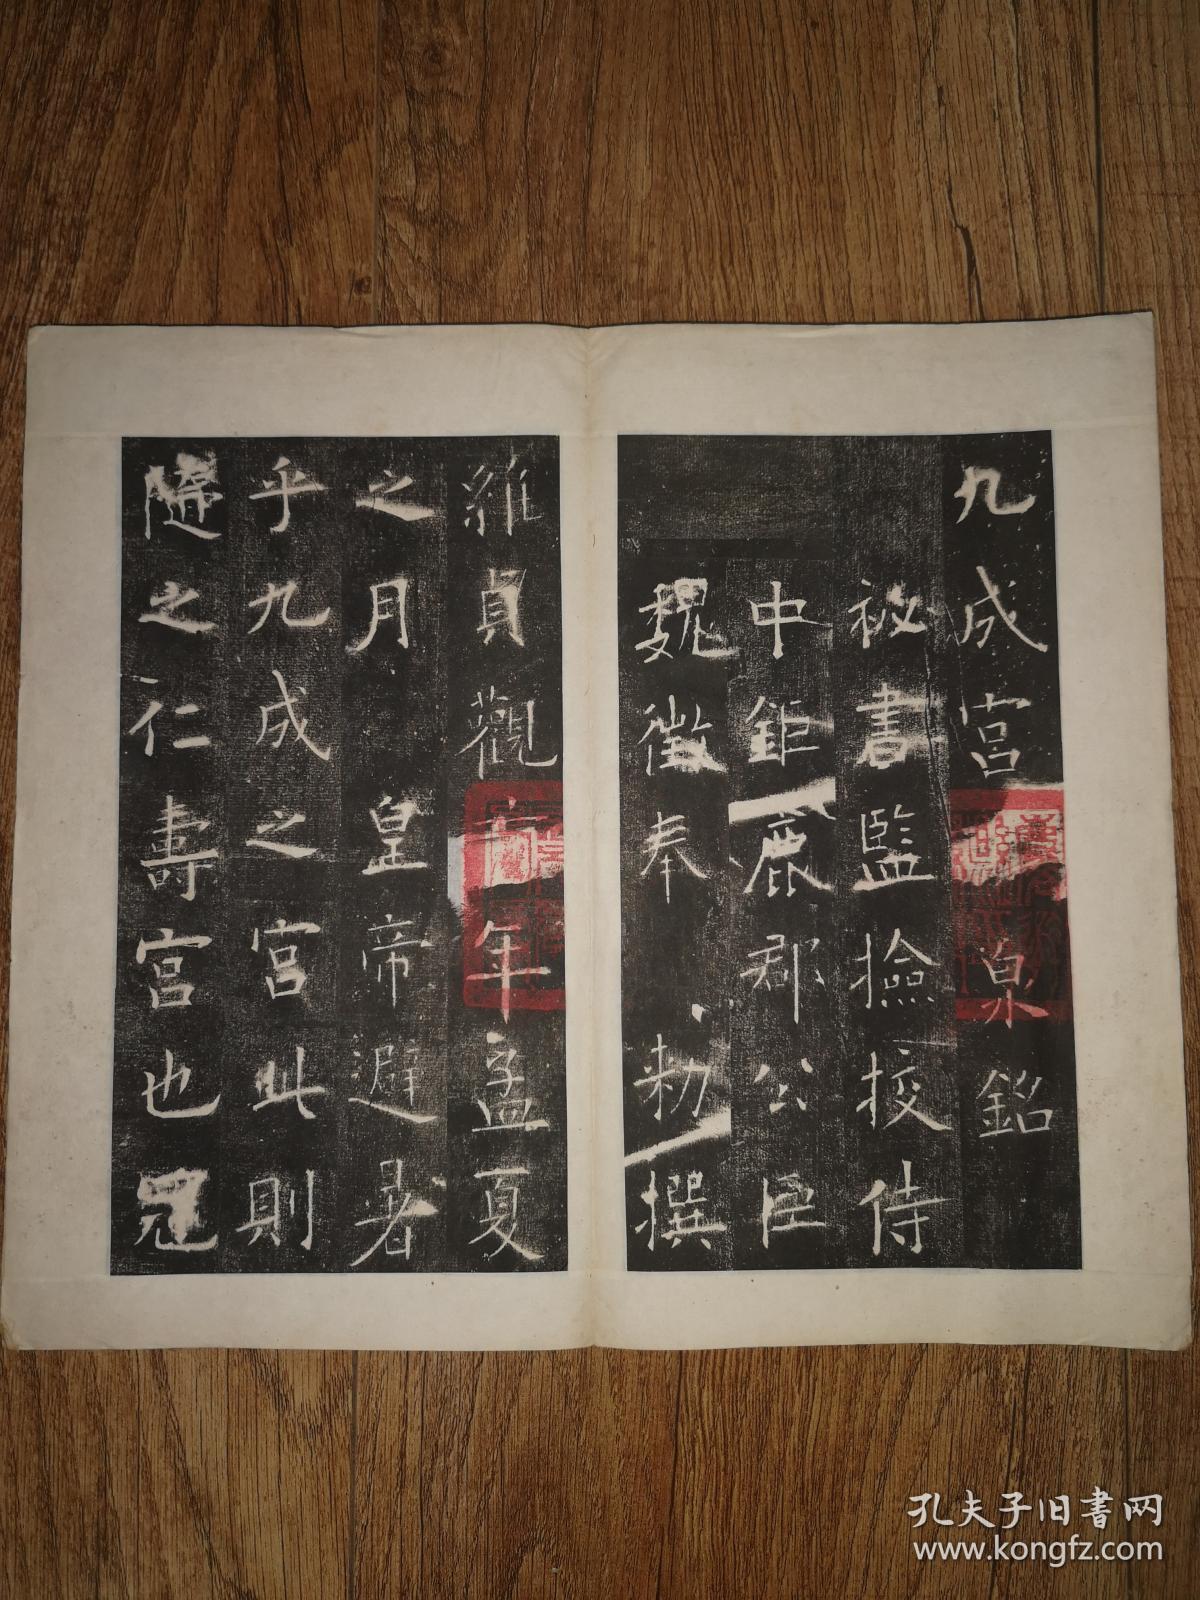 九成宮泉銘
秘書監撿挍侍
中鉅鹿郡公臣
魏徵奉勅撰
維貞觀六年孟夏
之月皇帝避暑
乎九成之宮此則
隨之仁壽宮也冠
孔夫子旧书网
www.kongfz.com